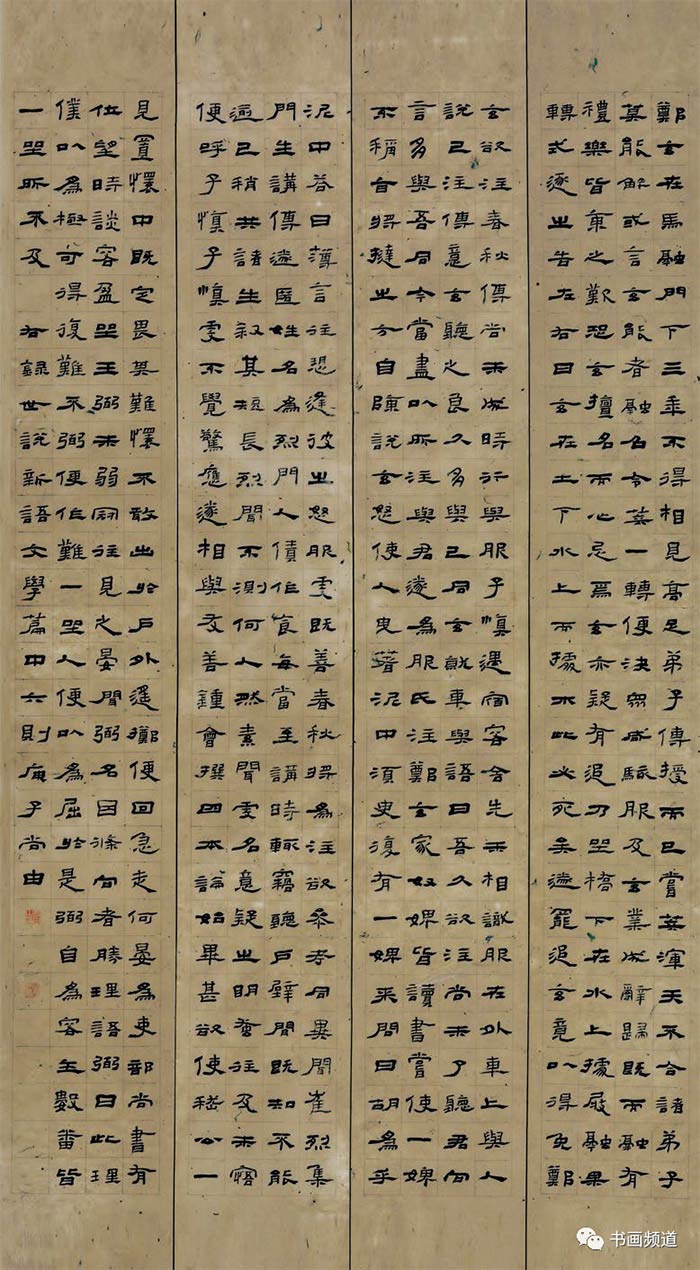 鄭玄在馬融門下三年不得相見高足弟子傳授而已嘗算渾天不合諸弟子
莫能解或言玄能者融召令算一轉便決眾咸駭服及玄業成辭歸既而融有
禮樂皆東之歎恐玄擅名而心忌焉玄亦疑有追乃坐橋下在水上據屐融果
轉式逐之告左右曰玄在土下水上而據木此必死矣遂罷追玄竟以得免鄭
玄欲注春秋傳尚未成時行與服子慎遇宿客舍先未相識服在外車上與人
說己注傳意玄聽之良久多與己同玄就車與語曰吾久欲注尚未了聽君向
言多與吾同今當盡以所注與君遂為服氏注鄭玄家奴婢皆讀書嘗使一婢
不稱旨將撻之方自陳說玄怒使人曳著泥中須臾復有一婢來問曰胡為乎
泥中答曰薄言往愬逢彼之怒服虔既善春秋將為注欲參考同異聞崔烈集
門生講傳遂匿姓名為烈門人賃作食每當至講時輒竊聽戶壁間既知不能
踰己稍共諸生敘其短長烈聞不測何人然素聞虔名意疑之明蚤往及未寤
便呼子慎子慎虔不覺驚應遂相與友善鍾會撰四本論始畢甚欲使嵇公一
見置懷中既定畏其難懷不敢出於戶外遙擲便回急走何晏為吏部尚書有
位望時談客盈坐王弼未弱冠往見之晏聞弼名因條向者勝理語弼曰此理
僕以為極可得復難不弼便作難一坐人便以為屈於是弼自為客主數番皆
一坐所不及 右錄世說新語文學篇中六則庚子尚由
书画频道